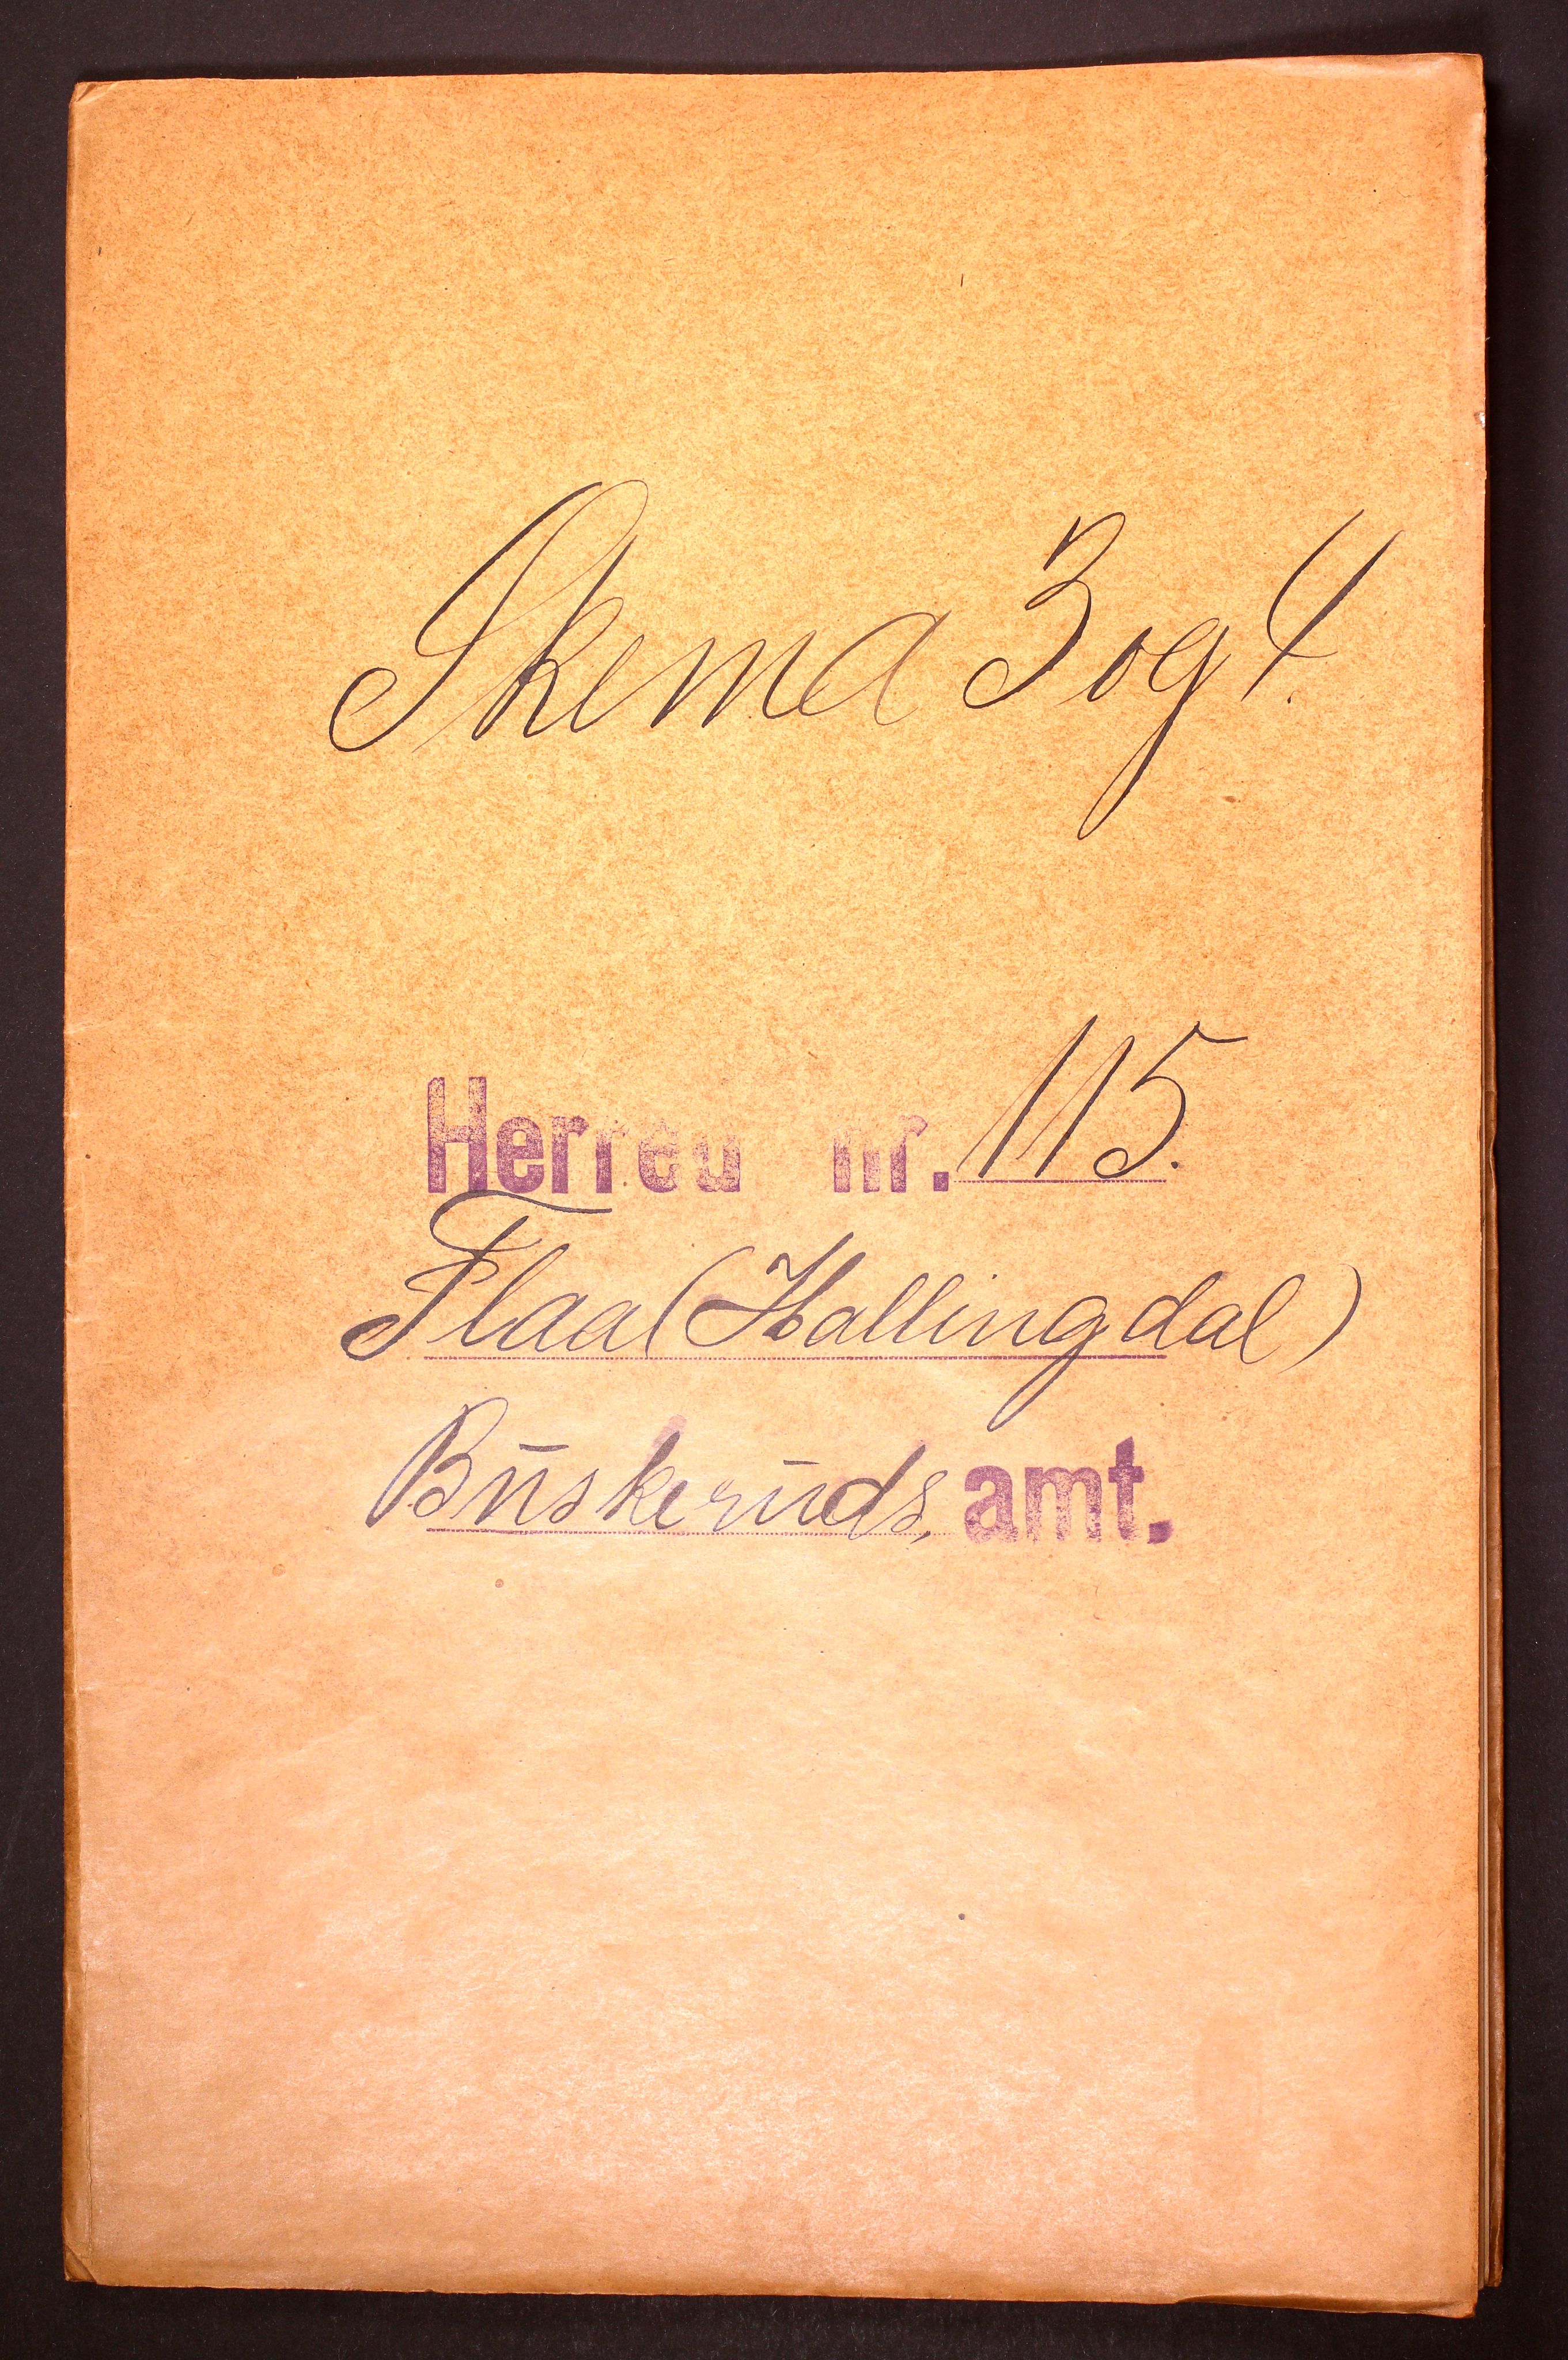 Skema 3 og 4.
Herred nr. 115.
Flaa (Hallingdal)
Buskeruds, amt.